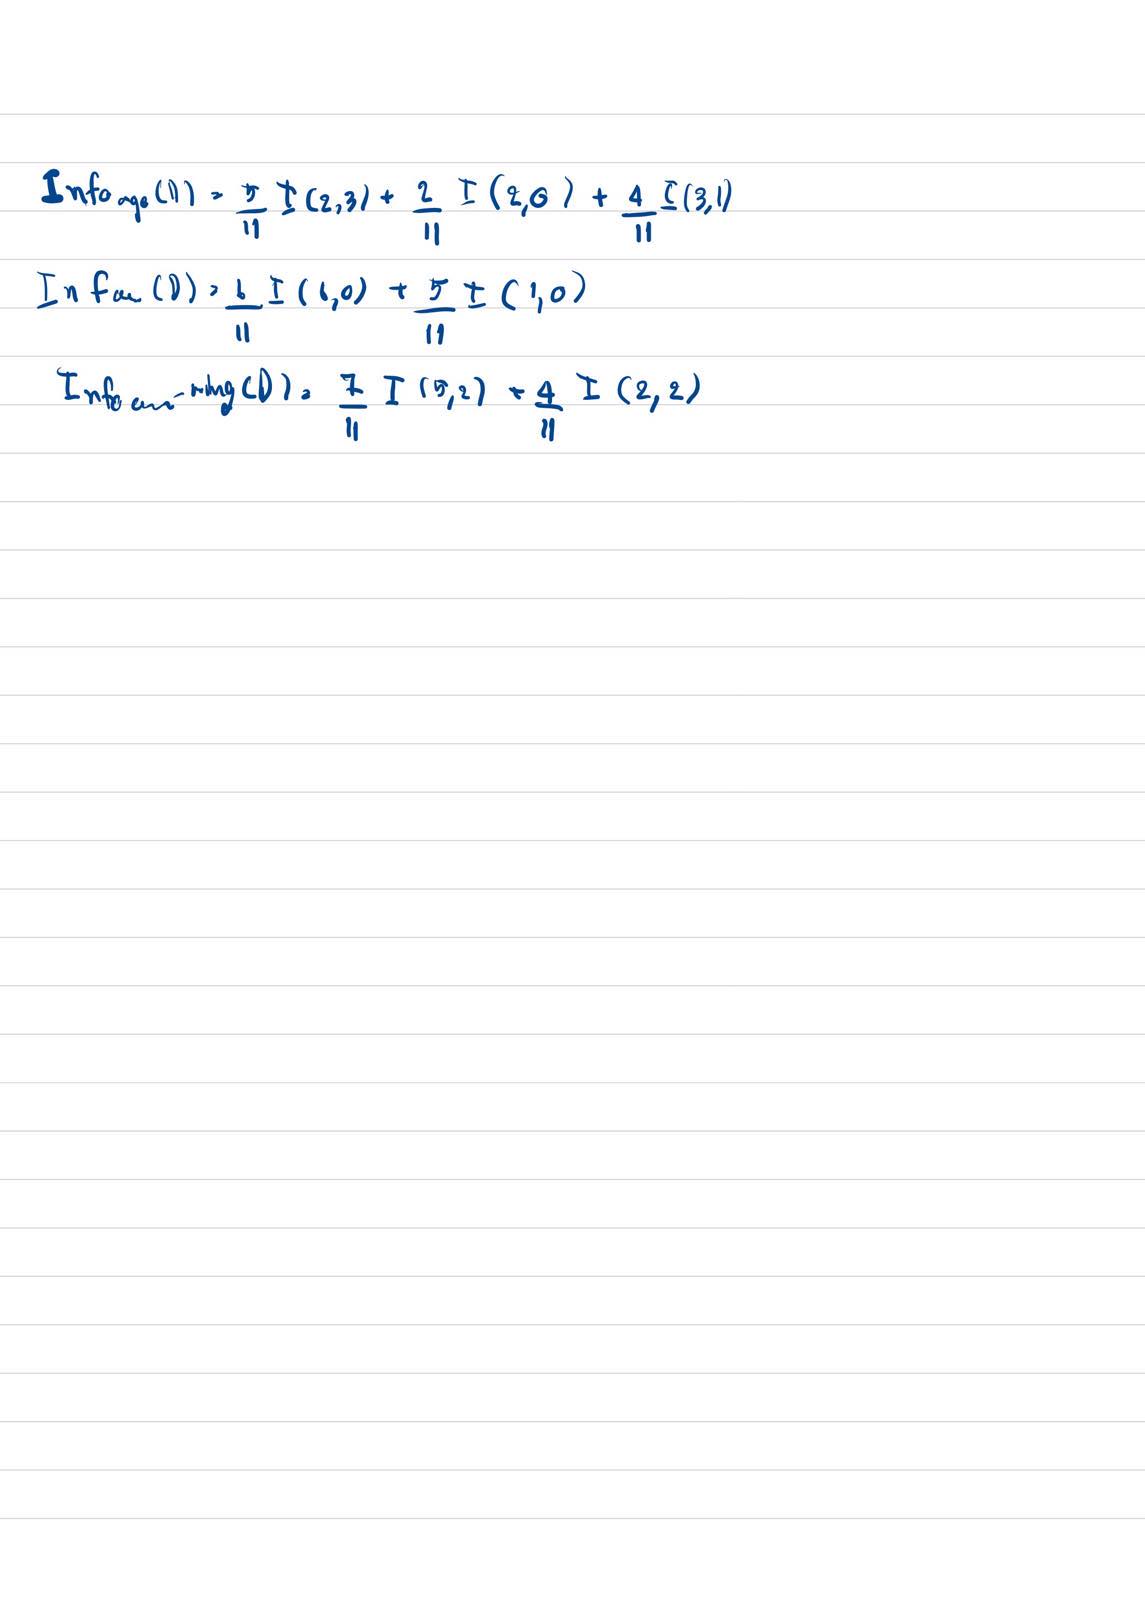 Info age(D) = 5/11 I(2,3) + 2/11 I(2,0) + 4/11 I(3,1)
Info (D) = 6/11 I(6,0) + 5/11 I(1,0)
Info (D) = 7/11 I(5,2) + 4/11 I(2,2)